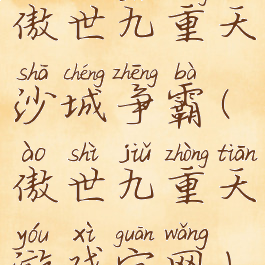 傲世九重天
shā chéng zhēng bà
沙城争霸（
ào shì jiǔ zhòng tiān
傲世九重天
yóu xì guān wǎng
游戏官网）